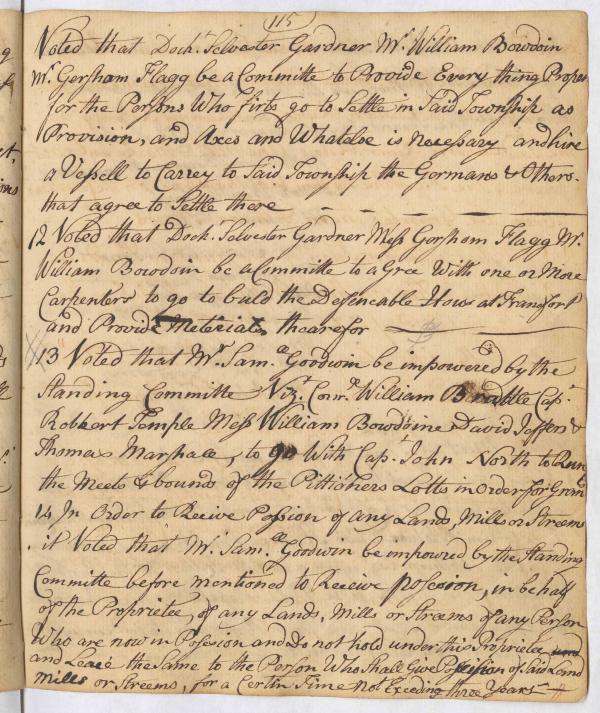 115
Voted that Doct.r Selvester Gardner Mr. William Bowdoin
Mr. Gorsham Flagg be a Committe to Provide Every thing Proper
for the Persons Who firts go to Settle in Said Township as
Provision, and Axes and Whatelse is necessary and hire
a Vessell to Carrey to Said Township the Germans & Others
that agree to Settle there
12 Voted that Doct.r Selvester Gardner Mess Gorsham Flagg Mr.
William Bowdoin be a Committe to a Gree With one or More
Carpenters to go to buld the Defencable Hous at Francfort
and Provide Meterials thearefor
13 Voted that Mr. Sam.ll Goodwin be impowered by the
Standing Committe Viz.t William Brattle Cap.t
Robbert Temple Mess William Bowdoine David Jeffers &
Thomas Marshall, to go With Cap.t John North to Run
the Meets & bounds of the Pittioners Lotts in order for
14 In Order to Recive Possion of any Lands, Mills or Streams
it Voted that Mr. Sam.ll Goodwin be impowred by the Standing
Committe before mentioned to Receive posesion, in behalf
of the Proprietee, of any Lands, Mills or Streems of any Person
Who are now in Posesion and Do not hold under this Propriete
and Leace the Same to the Person Who Shall Give Possision of Said Land
Mills or Streems, for a Certin Time not Exceding three Years